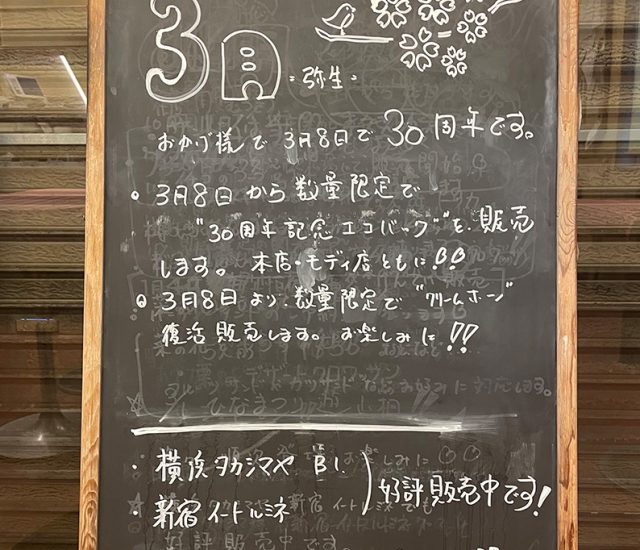 3月 =弥生=
おかげ様で 3月8日で 30周年です。
・3月8日 から 数量限定で
"30周年記念 エコバーグ"を、販売
します。 本店・モディ店ともに!!
・3月8日 より、数量限定で "クリームホーン"
復活販売します。 お楽しみに!!
・横浜タカシマヤ B1
・新宿イートルミネ
好評販売中です!